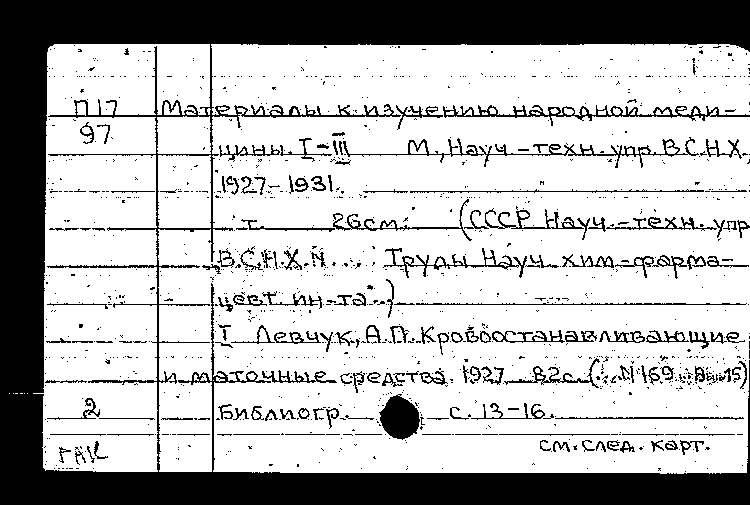 П17 Материалы к изучению народной меди-
97
цины. I-III М., Науч.-техн. упр. В.С.Н.Х.
1927-1931.
т. 26см. (СССР Науч.-техн. упр
В.С.Н.Х. N... Труды Науч. хим-фарма-
цевт. ин-та..)
I Левчук, А.П. Кровоостанавливающие
и маточные средства. 1927 82с. (... N169
2 Библиогр. с. 13-16.
см. след. карт.